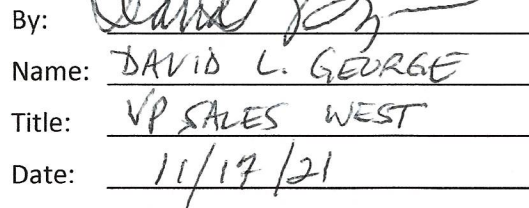 By:
Name: DAVID L. GEORGE
Title: VP SALES WEST
Date: 11/17/21